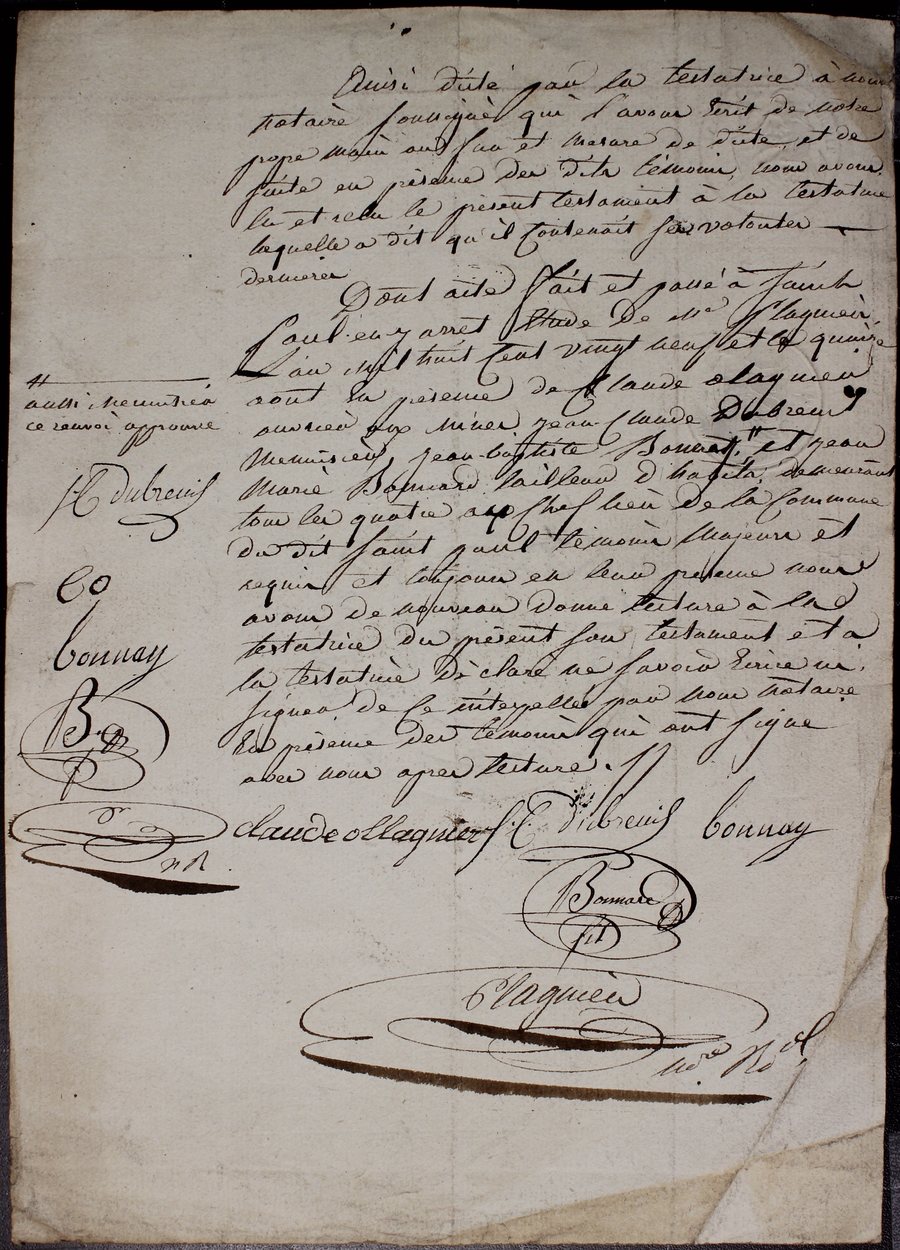 Ainsi dicté par la testatrice à nous
notaire soussigné qui l'avons écrit de notre
prope main au fur et mesure de dicte, et de
suite en présence des dits témoins, nous avons
lu et relu le présent testament à la testatrice
laquelle a dit qu'il contenait ses volontés
dernieres
Dont acte fait et passé à Saint
Paul en jarret Etude de Me Ollagnier
L'an mil huit cent vingt neuf et le quinze
aout en présence de Claude ollagnier
ouvrier aux mines jean Claude Dubreuil
Menuisier, jean-baptiste Bonnay,# et jean
Marie Bonnard tailleur d'habits, demeurant
tous les quatre au chef lieu de la Commune
du dit saint paul témoins Majeurs et
requis et toujours en leur présence nous
avons de nouveau donné lecture à la
testatrice du présent son testament et a
la testatrice déclaré ne savoir Ecrire ni
signer de ce interpellée par nous Notaire
En présence des témoins qui ont signé
avec nous apres lecture. //
#
aussi Menuisier
ce renvoi approuvé
J C dubreuil
CO
bonnay
B
nre
claude ollagnier J C Dubreuil bonnay
Bonnard
fils
Ollagnier
nore Ral